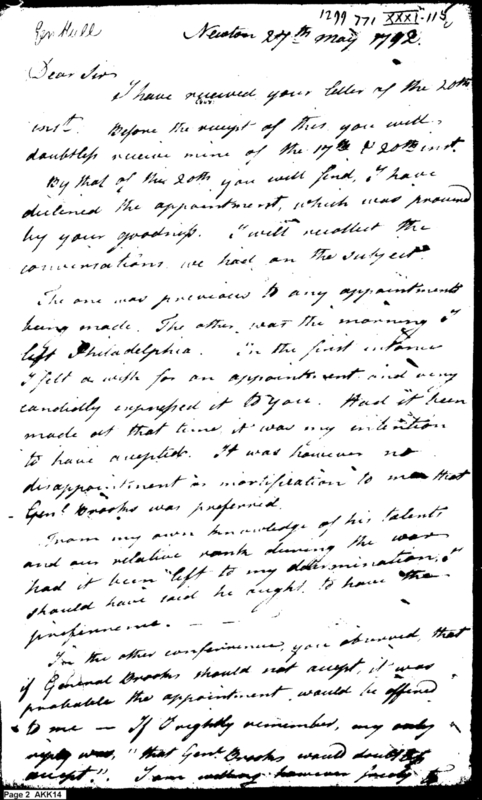 1299 771 XXXI-115
Gen Hull
Newton 27th May 1792.
Dear Sir
I have received your letter of the 20th
inst. Before the receipt of this you will
doubtless receive mine of the 17th & 20th inst.
By that of the 20th you will find, I have
declined the appointment, which was procured
by your goodness. I will recollect the
conversations we had on the subject
The one was previous to any appointments
being made. The other was the morning I
left Philadelphia. In the first instance
I felt a wish for an appointment and very
candidly expressed it to you. Had it been
made at that time it was my intention
to have accepted. It was however no
disappointment or mortification to me that
Genl. Brooks was preferred.
From my own knowledge of his talents
and our relative rank during the war
had it been left to my determination, I
should have said he ought to have the
preference.
In the other conference you observed, that
if General Brooks should not accept, it was
probable the appointment would be offered
to me — If I rightly remember, my only
reply was, "that Genl. Brooks would doubtless
accept". I am willing however freely to
Page 2 AKK14